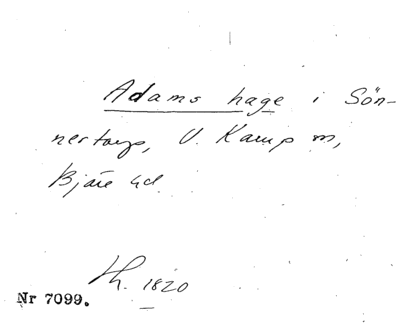 Adams hage i Sön-
nertorp, V. Karup sn,
Bjäre hd
Lh. 1820
Nr 7099.